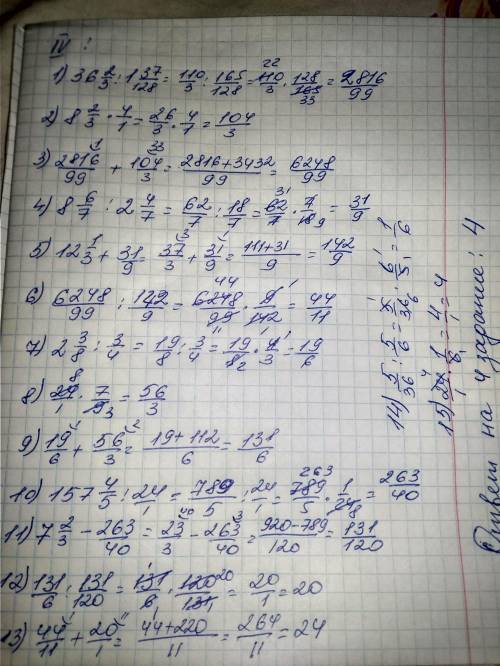 IV :
1) 36 2/3 : 1 37/128 = 110/3 : 165/128 = 110/3 · 128/165 = 2816/99
2) 8 2/3 · 4/1 = 26/3 · 4/1 = 104/3
3) 2816/99 + 104/3 = 2816+3432/99 = 6248/99
4) 8 6/7 : 2 4/7 = 62/7 : 18/7 = 62/7 · 7/18 = 31/9
5) 12 1/3 + 31/9 = 37/3 + 31/9 = 111+31/9 = 142/9
6) 6248/99 : 142/9 = 6248/99 · 9/142 = 44/11
7) 2 3/8 : 3/4 = 19/8 : 3/4 = 19/8 · 4/3 = 19/6
8) 24/1 · 7/9 = 56/3
9) 19/6 + 56/3 = 19+112/6 = 131/6
10) 157 4/5 : 24 = 789/5 : 24/1 = 789/5 · 1/24 = 263/40
11) 7 2/3 - 263/40 = 23/3 - 263/40 = 920-789/120 = 131/120
12) 131/6 : 131/120 = 131/6 · 120/131 = 20/1 = 20
13) 44/11 + 20/1 = 44+220/11 = 264/11 = 24
14) 5/36 : 5/6 = 5/36 · 6/5 = 1/6
15) 24/1 · 1/6 = 4/1 = 4
на 4 задание: 4